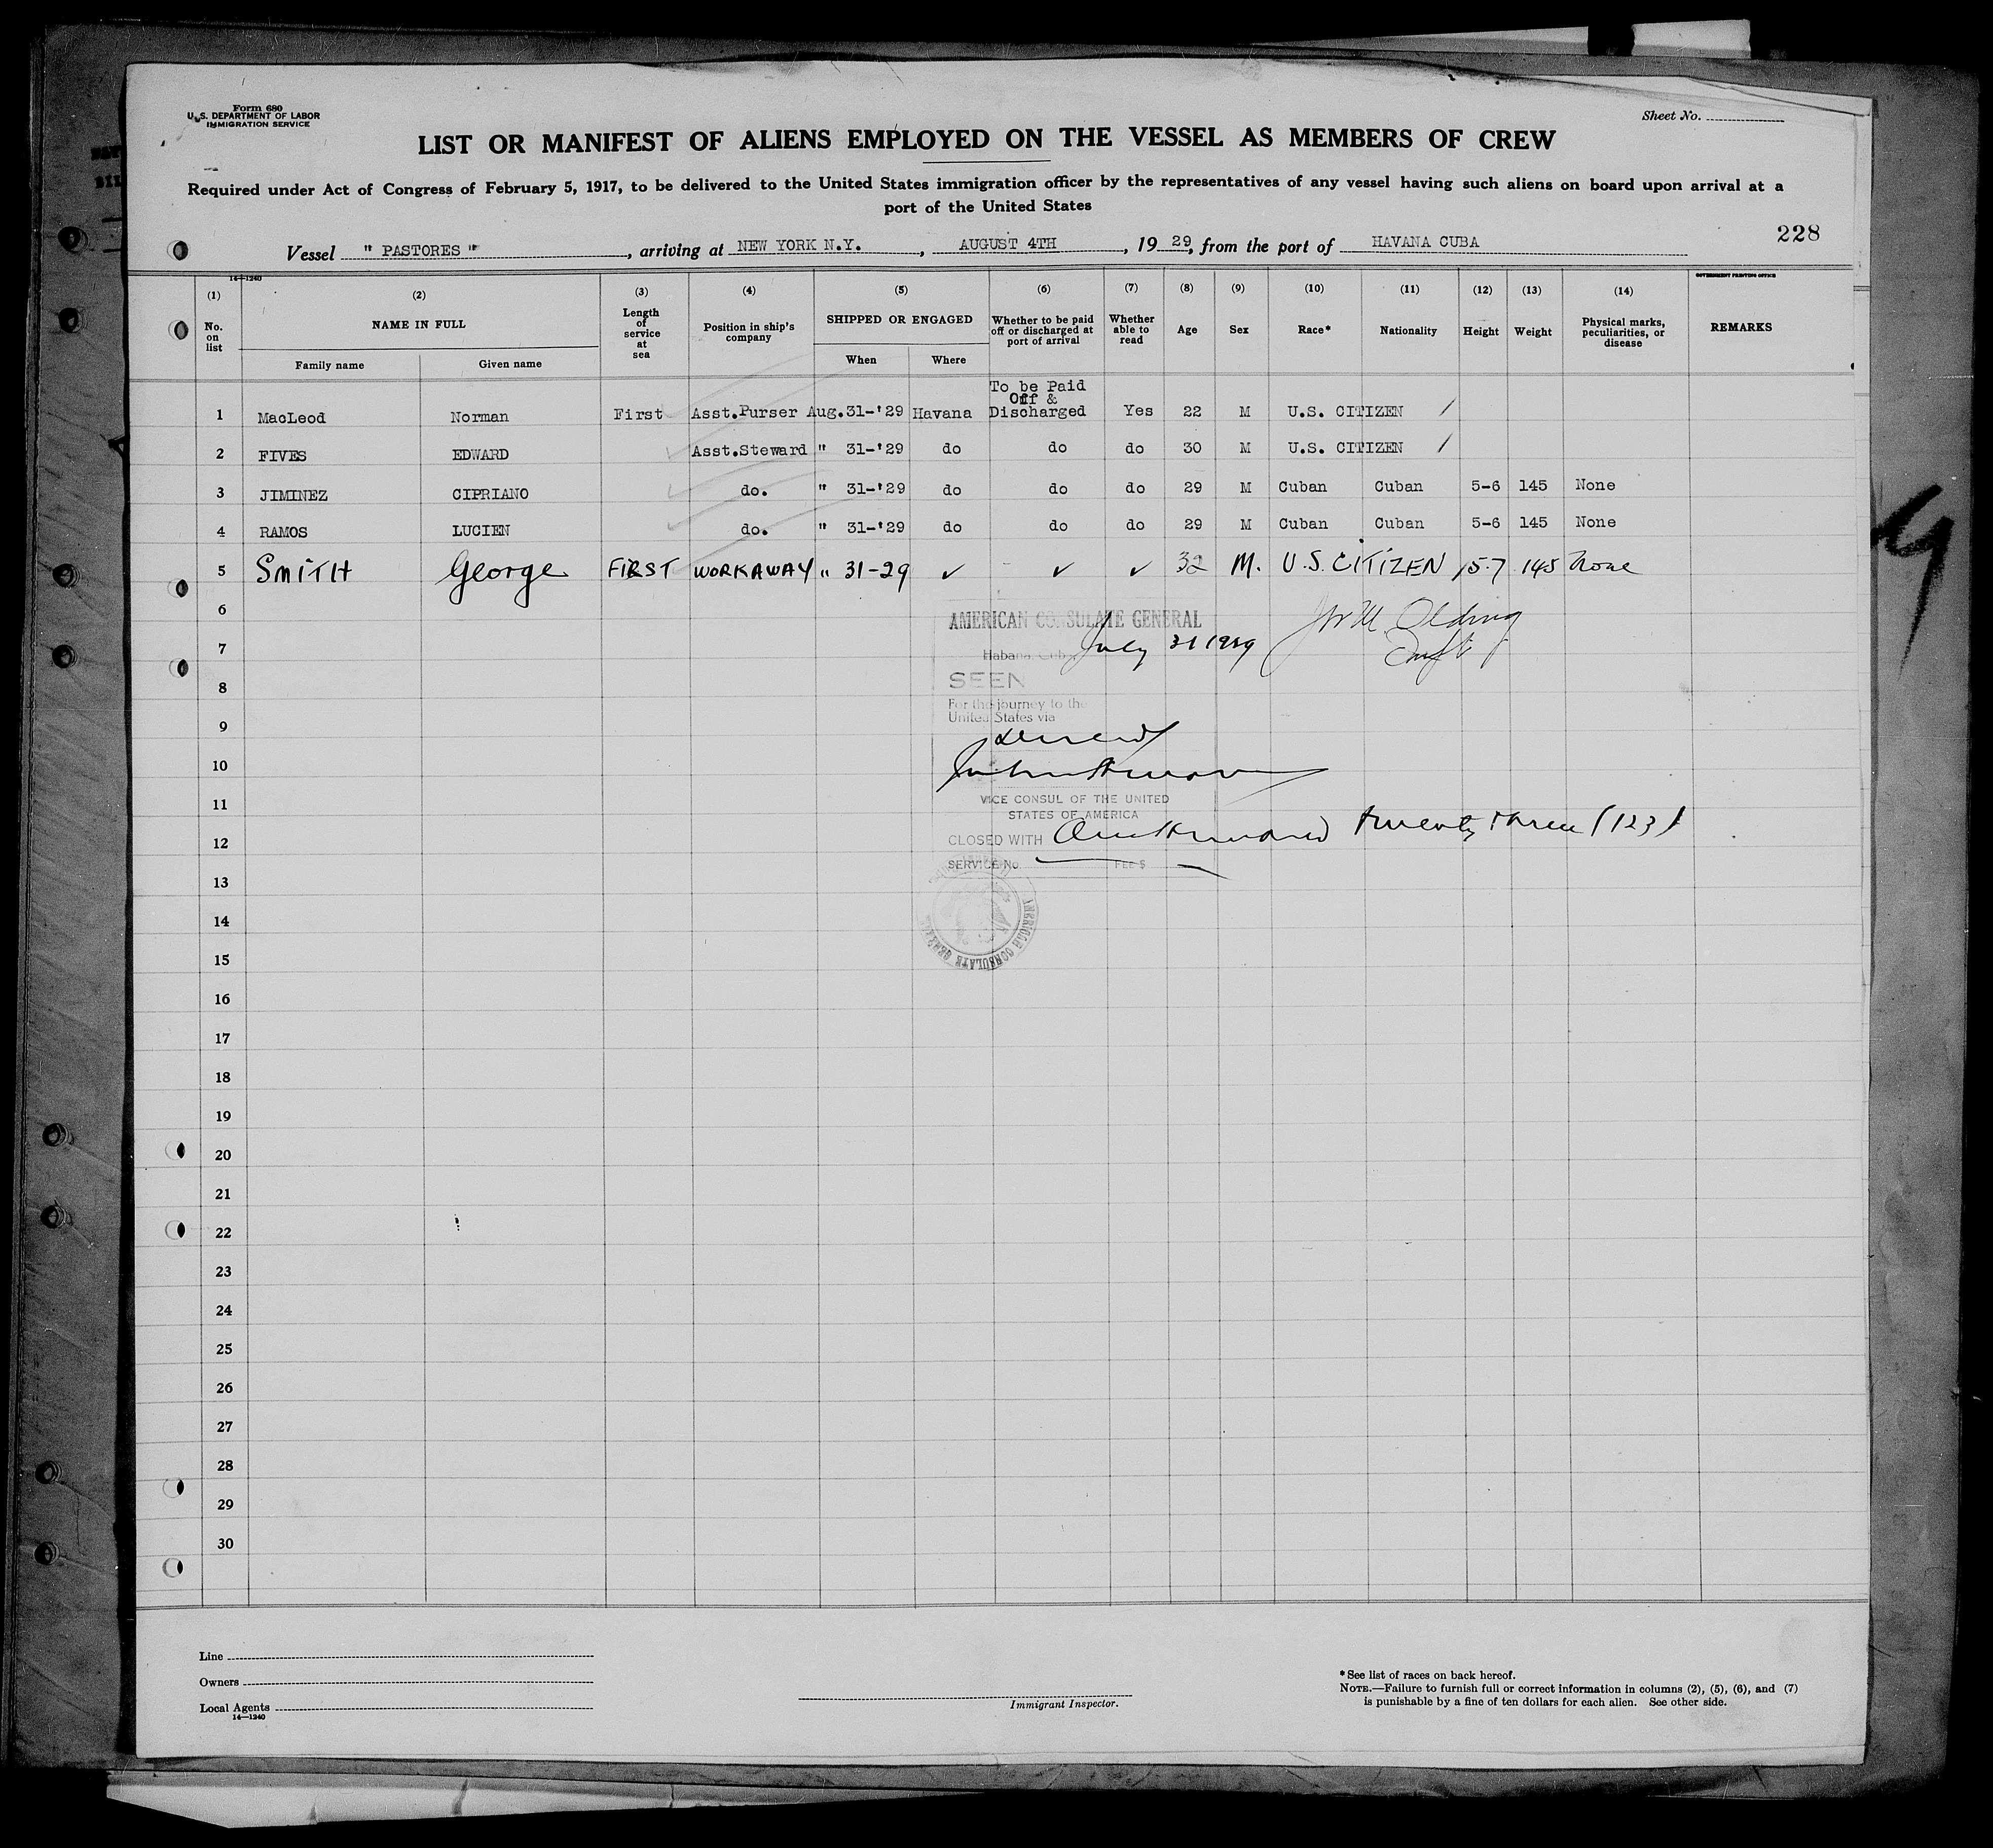 Form 680
U.S. DEPARTMENT OF LABOR
IMMIGRATION SERVICE
Sheet No.
LIST OR MANIFEST OF ALIENS EMPLOYED ON THE VESSEL AS MEMBERS OF CREW
Required under Act of Congress of February 5, 1917, to be delivered to the United States immigration officer by the representatives of any vessel having such aliens on board upon arrival at a
port of the United States
228
Vessel " PASTORES ", arriving at NEW YORK N.Y., AUGUST 4TH, 19 29, from the port of HAVANA CUBA
14-1240
GOVERNMENT PRINTING OFFICE
(1) (2) (3) (4) (5) (6) (7) (8) (9) (10) (11) (12) (13) (14)
No. on list NAME IN FULL Length of service at sea Position in ship's company SHIPPED OR ENGAGED Whether to be paid off or discharged at port of arrival Whether able to read Age Sex Race* Nationality Height Weight Physical marks, peculiarities, or disease REMARKS
Family name Given name When Where
To be Paid
Off &
1 MacLeod Norman First Asst.Purser Aug.31-'29 Havana Discharged Yes 22 M U.S. CITIZEN /
2 FIVES EDWARD Asst.Steward " 31-'29 do do do 30 M U.S. CITIZEN /
3 JIMINEZ CIPRIANO do. " 31-'29 do do do 29 M Cuban Cuban 5-6 145 None
4 RAMOS LUCIEN do. " 31-'29 do do do 29 M Cuban Cuban 5-6 145 None
5 SMITH George FIRST WORKAWAY " 31-29 ✓ ✓ ✓ 32 M. U.S. CITIZEN 5-7 145 None
6
AMERICAN CONSULATE GENERAL
7
July 31 1929
Habana, Cuba
8
SEEN
For the journey to the
United States via
9
10
11
VICE CONSUL OF THE UNITED
STATES OF AMERICA
12
CLOSED WITH One Hundred twenty three (123)
SERVICE No. FEE $
13
14
AMERICAN CONSULATE GENERAL
15
16
17
18
19
20
21
22
23
24
25
26
27
28
29
30
Line
Owners
Local Agents
14-1240
Immigrant Inspector.
*See list of races on back hereof.
NOTE.—Failure to furnish full or correct information in columns (2), (5), (6), and (7)
is punishable by a fine of ten dollars for each alien. See other side.